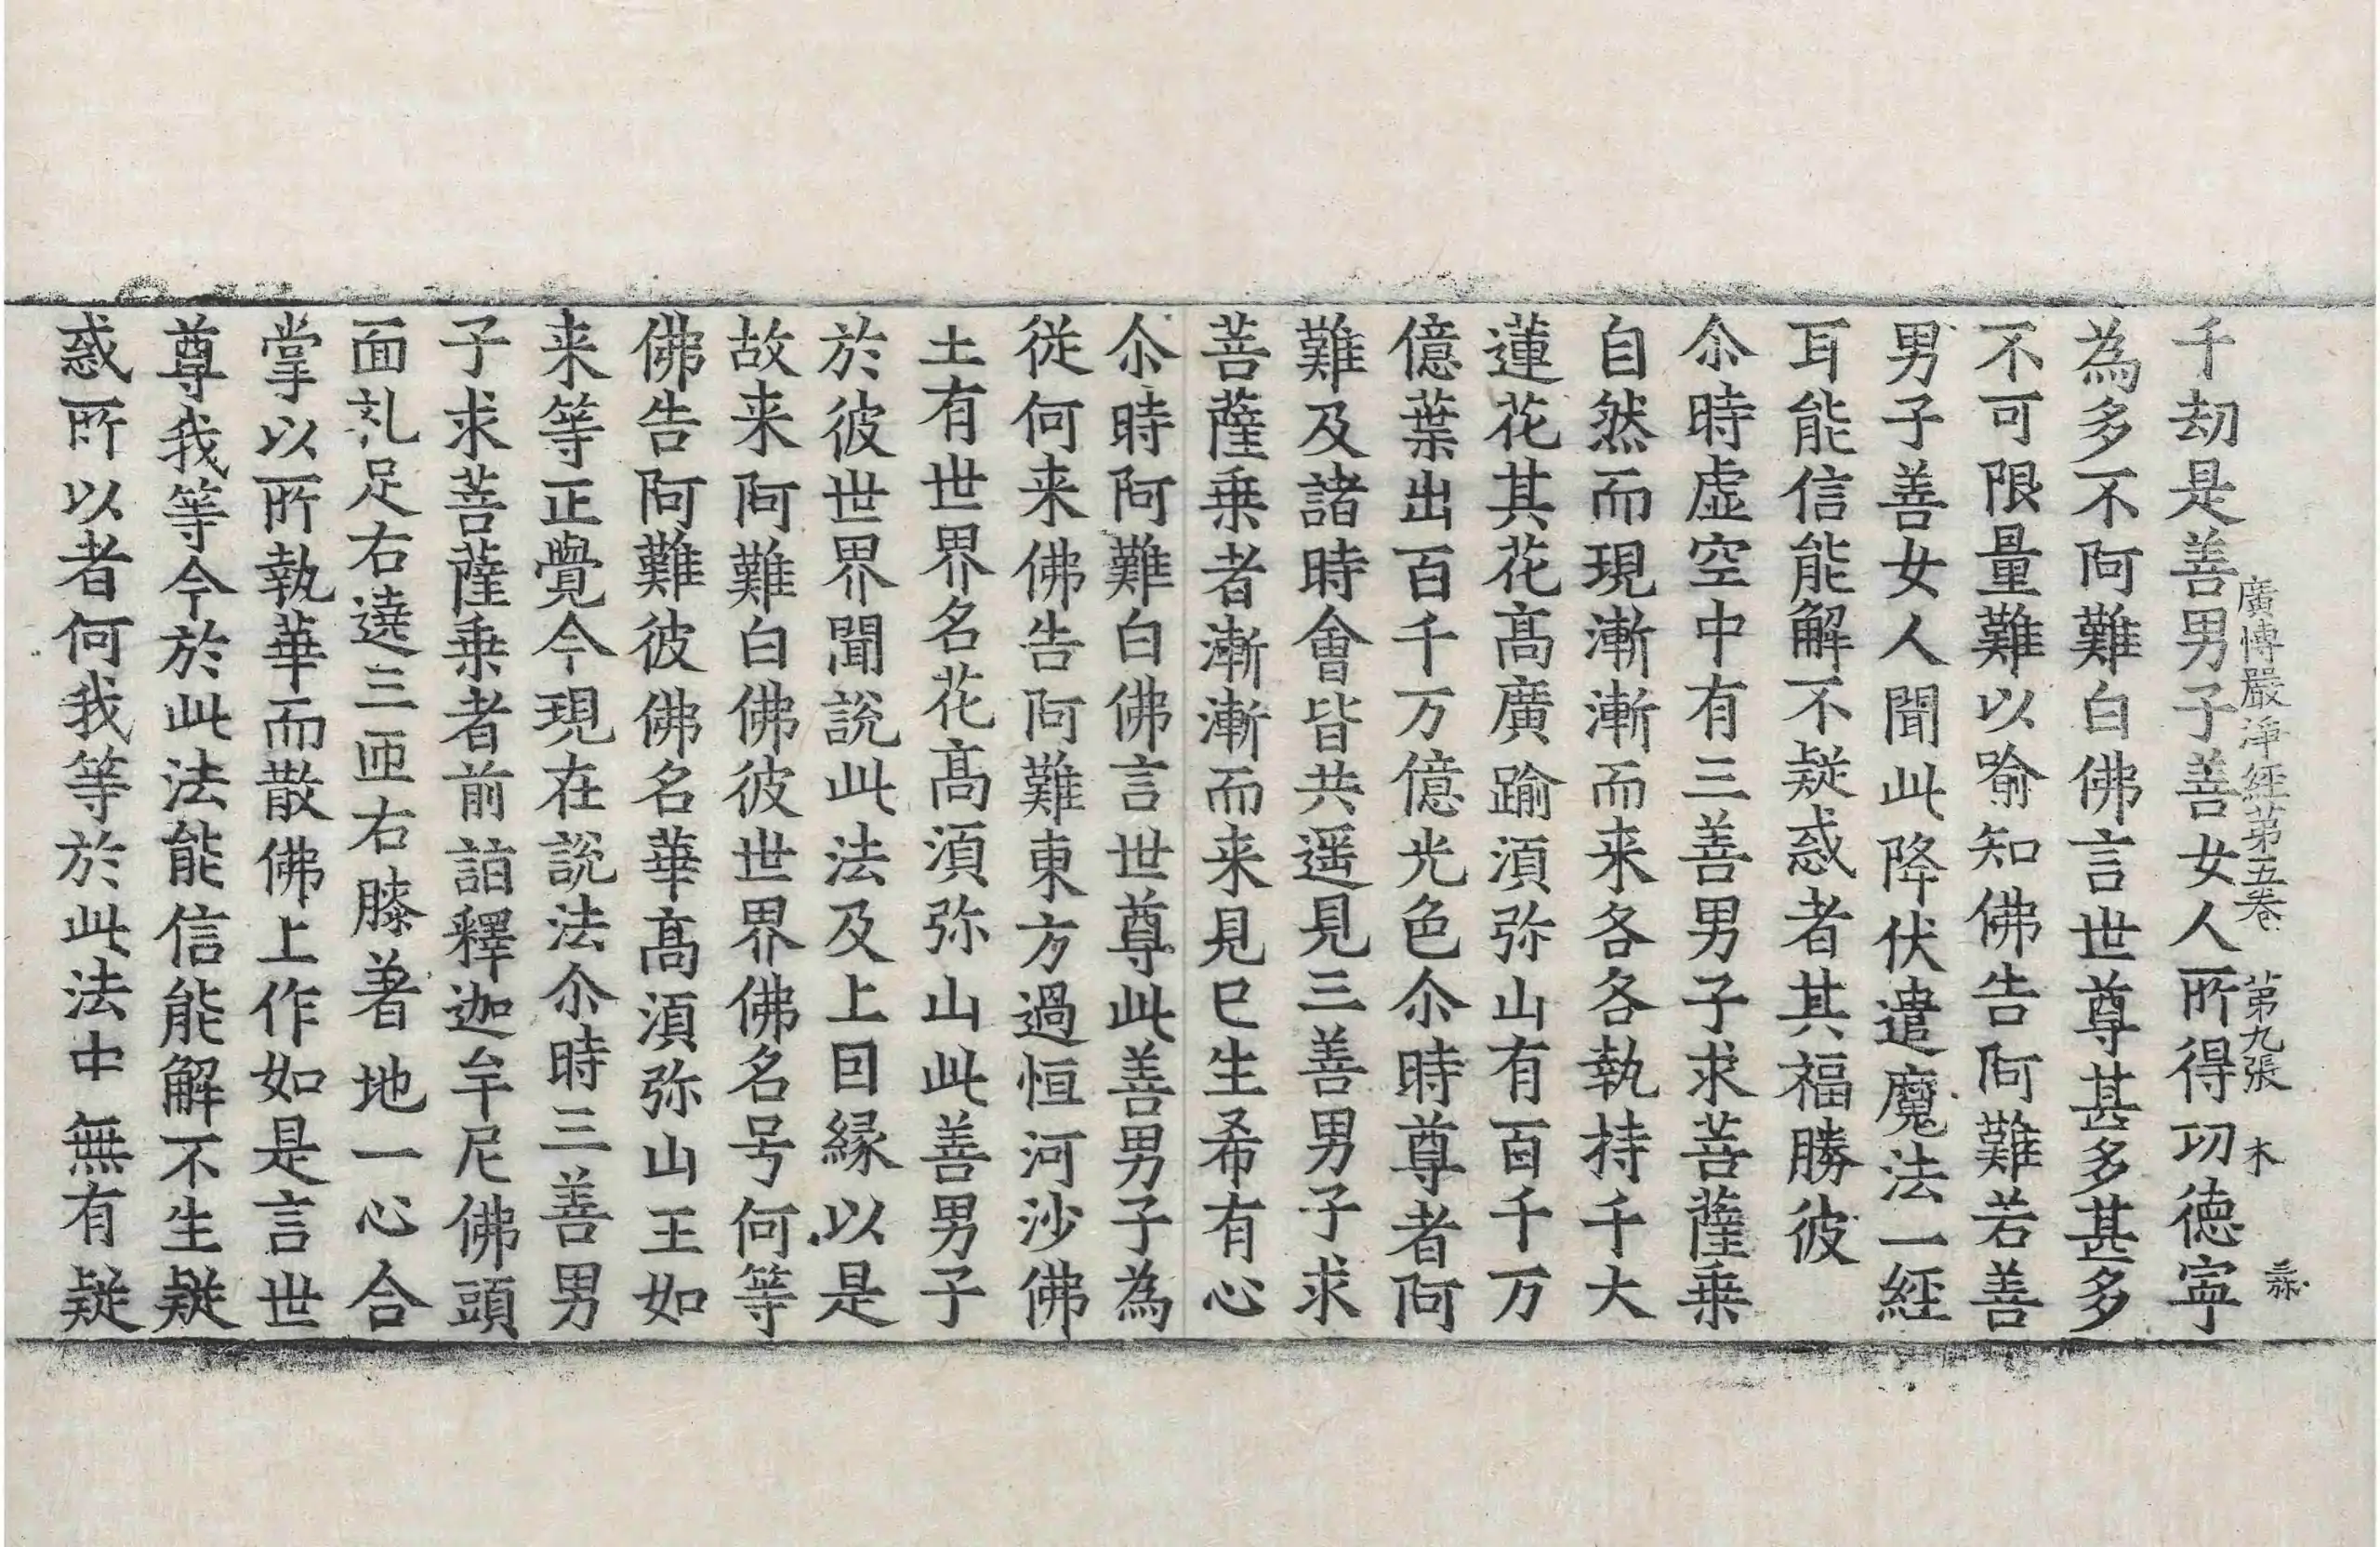 廣愽嚴淨經第五卷 第九張 木
千劫是善男子善女人所得功德寧
為多不阿難白佛言世尊甚多甚多
不可限量難以喻知佛告阿難若善
男子善女人聞此降伏遣魔法一經
耳能信能解不疑惑者其福勝彼
尒時虛空中有三善男子求菩薩乗
自然而現漸漸而来各各執持千大
蓮花其花髙廣踰湏弥山有百千万
億葉出百千万億光色尒時尊者阿
難及諸時會皆共遥見三善男子求
菩薩乗者漸漸而来見已生希有心
尒時阿難白佛言世尊此善男子為
従何来佛告阿難東方過恒河沙佛
土有世界名花髙湏弥山此善男子
於彼世界聞說此法及上回縁以是
故来阿難白佛彼世界佛名号何等
佛告阿難彼佛名華髙湏弥山王如
来等正覺今現在說法尒時三善男
子求菩薩乗者前詣釋迦牟尼佛頭
面礼足右遶三匝右膝著地一心合
掌以所執華而散佛上作如是言世
尊我等今於此法能信能解不生疑
惑所以者何我等於此法中無有疑